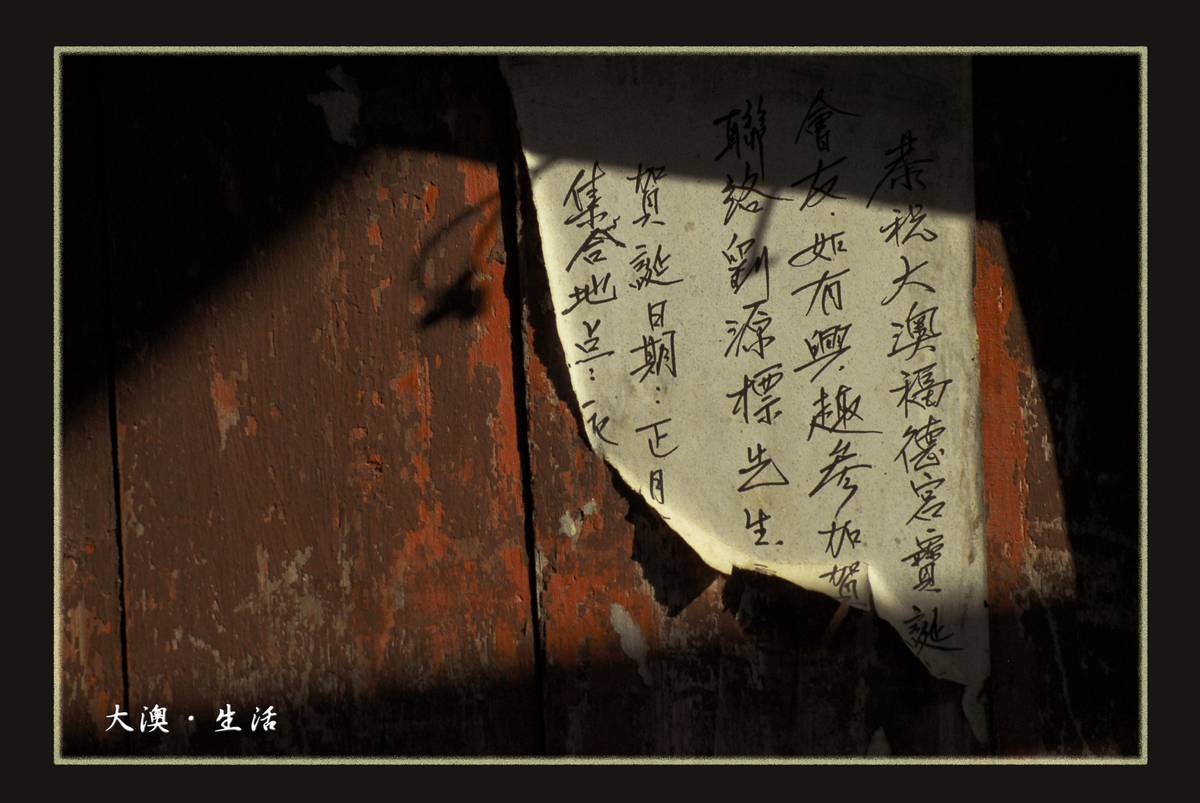 恭祝大澳福德宮寶誕
會友.如有興趣參加賀
聯絡劉源標先生.
賀誕日期:正月
集合地点:
大澳·生活